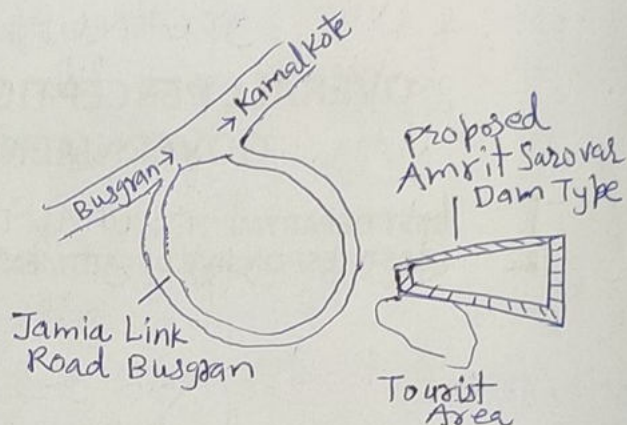 Busgran → → Kamalkote
Proposed
Amrit Sarovar
Dam Type
Jamia Link
Road Busgran
Tourist
Area